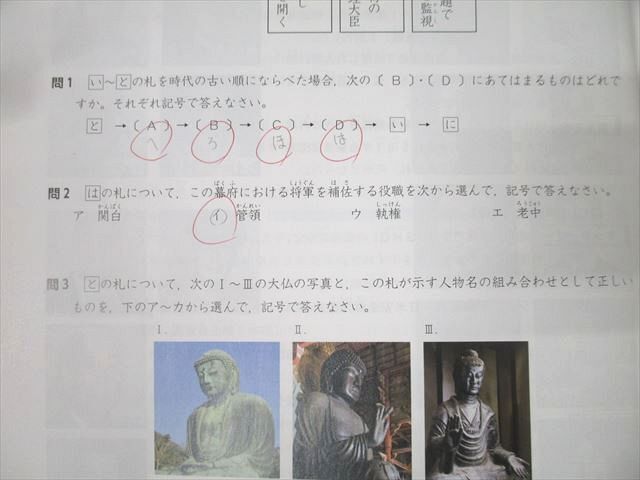 題で
監視
の
大臣
し
開く
問1 い～との札を時代の古い順にならべた場合，次の〔 B 〕・〔 D 〕にあてはまるものはどれで
すか。それぞれ記号で答えなさい。
と →〔 A 〕→〔 B 〕→〔 C 〕→〔 D 〕→ い → に
へ ろ ほ は
問2 はの札について，この幕府における将軍を補佐する役職を次から選んで，記号で答えなさい。
ア 関白 イ 管領 ウ 執権 エ 老中
問3 との札について，次のⅠ～Ⅲの大仏の写真と，この札が示す人物名の組み合わせとして正しい
ものを，下のア～カから選んで，記号で答えなさい。
Ⅰ． Ⅱ． Ⅲ．